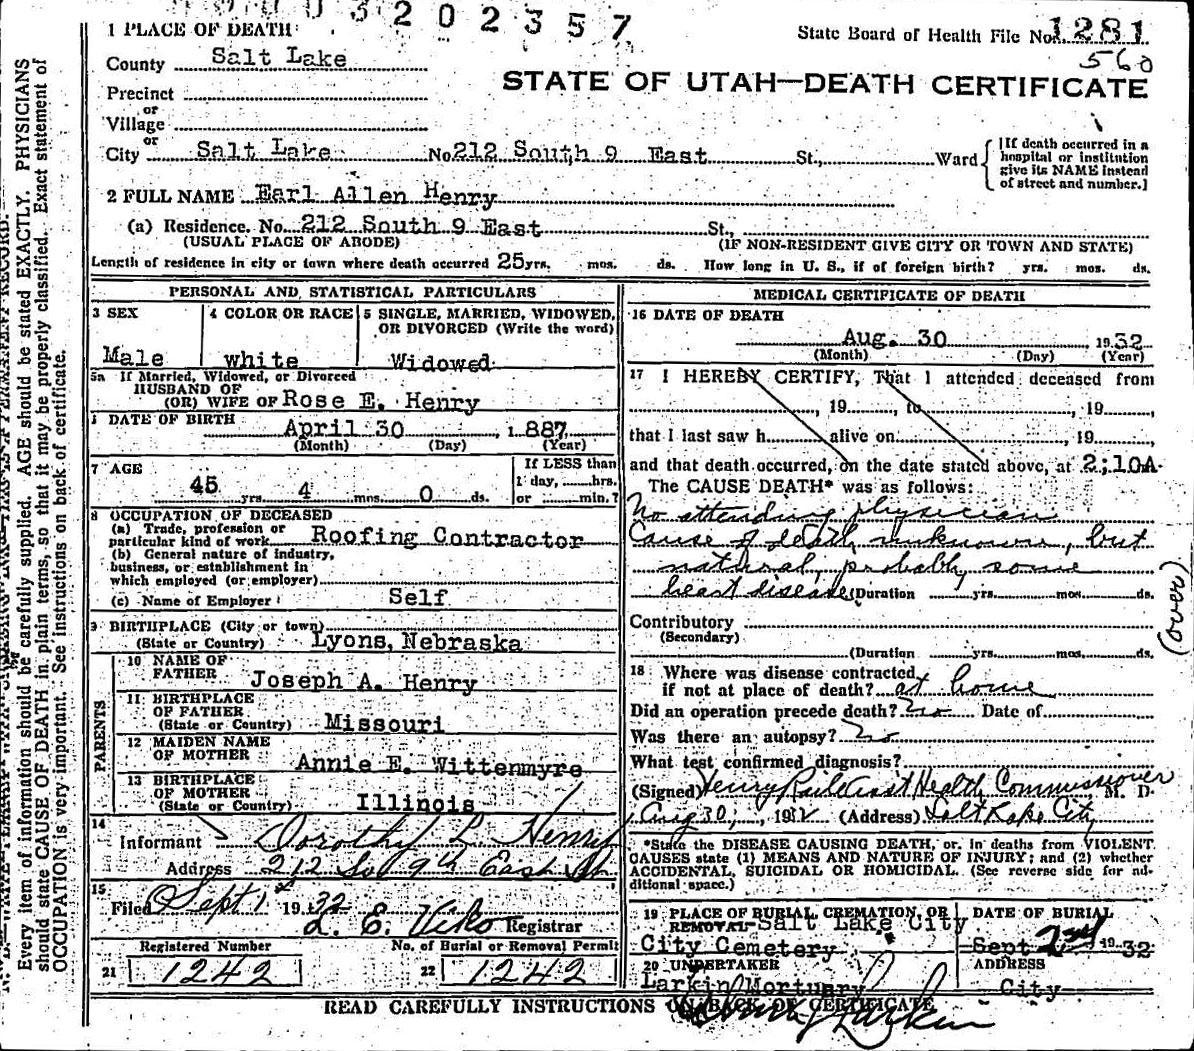 3 2 0 2 3 5 7
1 PLACE OF DEATH
State Board of Health File No. 1281
560
County Salt Lake
STATE OF UTAH—DEATH CERTIFICATE
Precinct
or
Village
or
City Salt Lake No. 212 South 9 East St., Ward
[If death occurred in a
hospital or institution
give its NAME instead
of street and number.]
2 FULL NAME Earl Allen Henry
(a) Residence. No. 212 South 9 East St.,
(USUAL PLACE OF ABODE) (IF NON-RESIDENT GIVE CITY OR TOWN AND STATE)
Length of residence in city or town where death occurred 25 yrs. mos. ds. How long in U. S., if of foreign birth? yrs. mos. ds.
PERSONAL AND STATISTICAL PARTICULARS
3 SEX
Male
4 COLOR OR RACE
white
5 SINGLE, MARRIED, WIDOWED,
OR DIVORCED (Write the word)
Widowed
5a If Married, Widowed, or Divorced
HUSBAND OF
(OR) WIFE OF Rose E. Henry
DATE OF BIRTH
April 30, 1887
(Month) (Day) (Year)
7 AGE
45 yrs. 4 mos. 0 ds.
If LESS than
1 day, hrs.
or min.?
8 OCCUPATION OF DECEASED
(a) Trade, profession or
particular kind of work Roofing Contractor
(b) General nature of industry,
business, or establishment in
which employed (or employer)
(c) Name of Employer Self
9 BIRTHPLACE (City or town)
(State or Country) Lyons, Nebraska
PARENTS
10 NAME OF
FATHER Joseph A. Henry
11 BIRTHPLACE
OF FATHER
(State or Country) Missouri
12 MAIDEN NAME
OF MOTHER Annie E. Wittenmyre
13 BIRTHPLACE
OF MOTHER
(State or Country) Illinois
14
Informant Dorothy L. Henry
Address 212 So 9th East St.
15
Filed Sept 1st 1932
L. E. Viko Registrar
Registered Number
21 1242
No. of Burial or Removal Permit
22 1242
MEDICAL CERTIFICATE OF DEATH
16 DATE OF DEATH
Aug. 30 1932
(Month) (Day) (Year)
17 I HEREBY CERTIFY, That I attended deceased from
, 19 , to , 19 ,
that I last saw h alive on , 19 ,
and that death occurred, on the date stated above, at 2:10A
The CAUSE DEATH* was as follows:
No attending physician
Cause of death unknown, but
natural, probably some
heart disease (Duration yrs. mos. ds.
(over)
Contributory
(Secondary)
(Duration yrs. mos. ds.
18 Where was disease contracted
if not at place of death? at home
Did an operation precede death? No Date of
Was there an autopsy? No
What test confirmed diagnosis?
(Signed) Henry Asst Health Commissioner M. D.
Aug 30, 1932 (Address) Salt Lake City
*State the DISEASE CAUSING DEATH, or in deaths from VIOLENT
CAUSES state (1) MEANS AND NATURE OF INJURY; and (2) whether
ACCIDENTAL, SUICIDAL OR HOMICIDAL. (See reverse side for ad-
ditional space.)
19 PLACE OF BURIAL, CREMATION, OR
REMOVAL Salt Lake City
City Cemetery
DATE OF BURIAL
Sept 2nd 1932
20 UNDERTAKER
Larkin Mortuary
ADDRESS
City
READ CAREFULLY INSTRUCTIONS ON BACK OF CERTIFICATE
Larkin
Every item of information should be carefully supplied. AGE should be stated EXACTLY. PHYSICIANS
should state CAUSE OF DEATH in plain terms, so that it may be properly classified. Exact statement of
OCCUPATION is very important. See instructions on back of certificate.